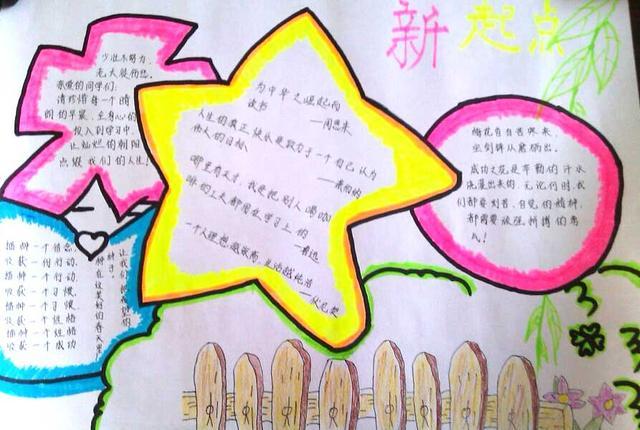 新起点
少壮不努力,
老大徒伤悲。
亲爱的同学们:
请珍惜每一个晴
朗的早晨,全身心的
投入到学习中,
让灿烂的朝阳
点缀我们的人生!
为中华之崛起而
读书 ——周恩来
人生的真正快乐是致力于一个自己认为
伟人的目标
——萧伯纳
哪里有天才,我是把别人喝咖
啡的工夫都用在学习上的
——鲁迅
一个人理想越崇高,生活越纯洁
——伏尼契
梅花香自苦寒来,
宝剑锋从磨砺出。
成功之花是辛勤的汗水
浇灌出来的,无论何时,我
们都要刻苦、自觉的精神,
都需要顽强拼搏的勇
气!
播种一个信念,
收获一份行动,
播种一个行动,
收获一个习惯,
播种一个习惯,
收获一个性格
播种一个性格
收获一个成功
让我们
种子,
种在这美好的春天里